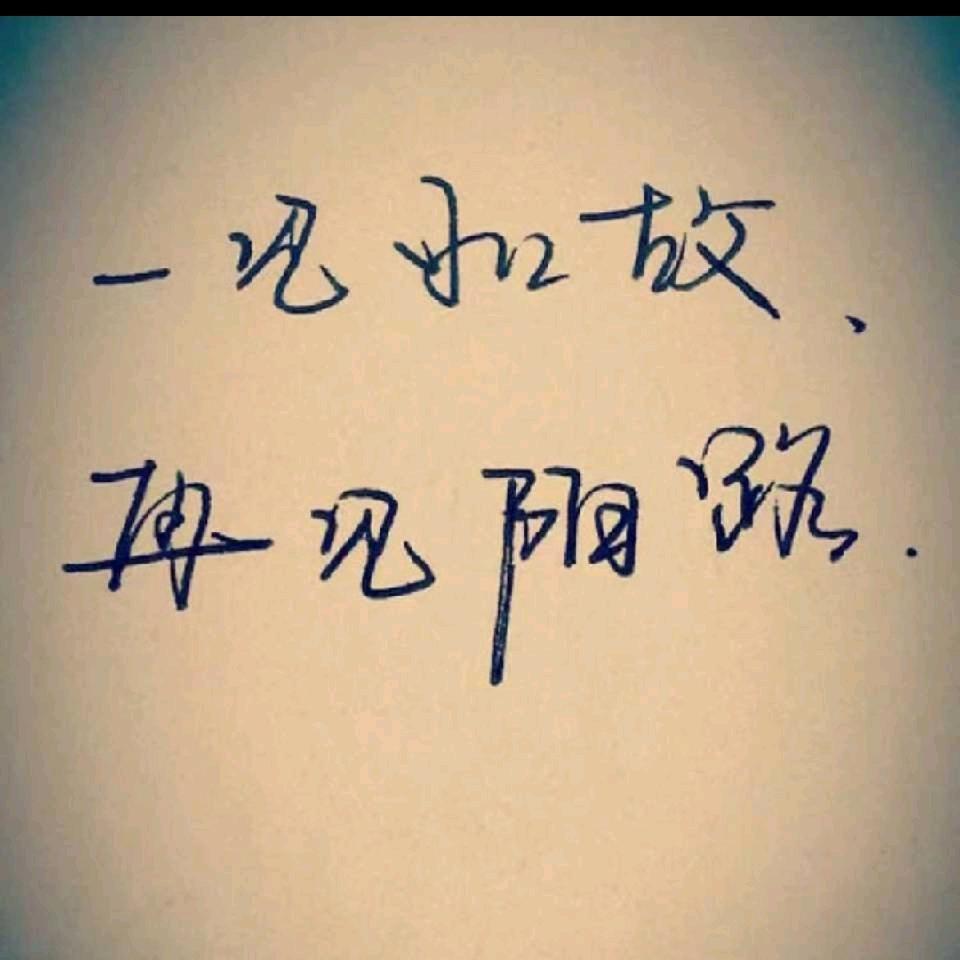 一见如故、
再见陌路.